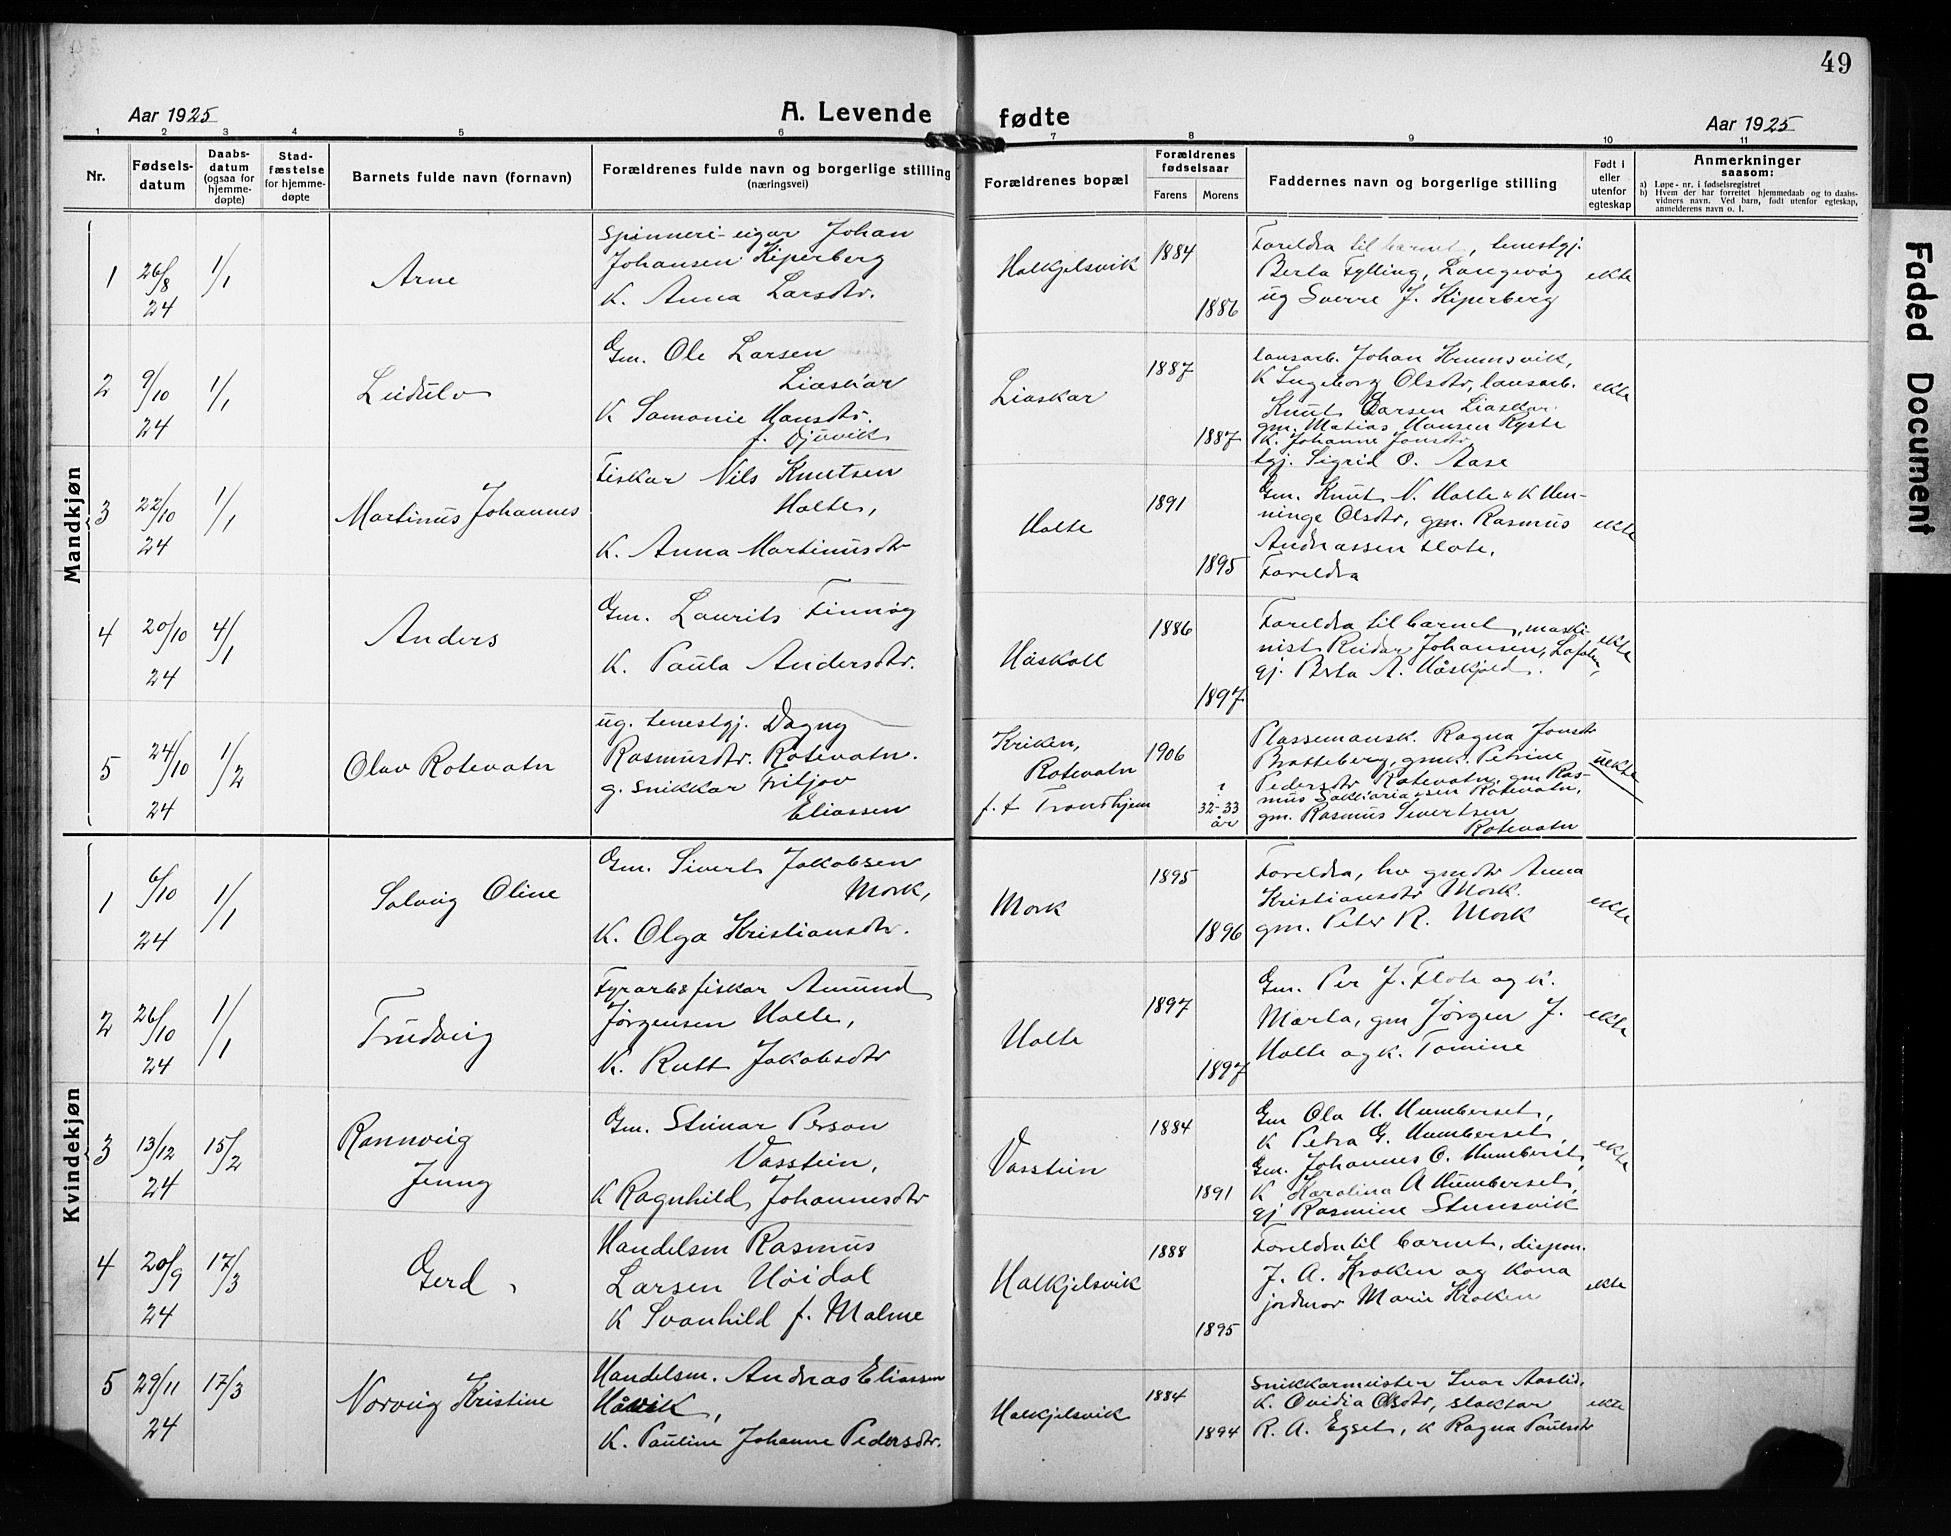 49
Aar 1925
A. Levende fødte
Aar 1925
1 2 3 4 5 6 7 8 9 10 11
Nr.
Fødsels-
datum
Daabs-
datum
(ogsaa for
hjemme-
døpte)
Stad-
fæstelse
for hjemme-
døpte
Barnets fulde navn (fornavn)
Forældrenes fulde navn og borgerlige stilling
(næringsvei)
Forældrenes bopæl
Forældrenes
fødselsaar
Farens Morens
Faddernes navn og borgerlige stilling
Født i
eller
utenfor
egteskap
Anmerkninger
saasom:
a) Løpe-nr. i fødselsregistret
b) Hvem der har forrettet hjemmedaab og to daabs-
vidners navn. Ved barn, født utenfor egteskap,
anmelderens navn o. l.
Faded Document
Mandkjøn
1
26/8
24
1/1
Arne
Spinneri-eigar Johan
Johansen Kiperberg
K. Anna Larsdtr.
Halkjelsvik
1884
1886
Foreldra til barnet, tenestgj.
Berta Fylling, Langevåg
ug Sverre J. Kiperberg
ekte
2
9/10
24
1/1
Leidulv
Gm. Ole Larsen
Liaskar
K Samonie Hansdtr.
f. Djuvik
Liaskar
1887
1887
lausarb. Johan Krumsvik,
K Ingeborg Olsdtr, lausarb.
Knut Larsen Liaskar.
gm. Matias Hansen Ryste
K. Johanne Jonsdtr
tgj. Sigrid O. Aase
ekte
3
22/10
24
1/1
Martinus Johannes
Fiskar Nils Knutsen
Holte,
K. Anna Martinusdtr
Holte
1891
1895
Gm. Knut N. Holte & K Hen-
ninge Olsdtr, gm. Rasmus
Andreassen Flote,
Foreldra
ekte
4
20/10
24
4/1
Anders
Gm. Laurits Finnøy
K. Paula Andersdtr.
Håskoll
1886
1897
Foreldra til barnet, maski-
nist Reidar Johansen,
gj. Berta A. Håskjold.
ekte
5
24/10
24
1/2
Olav Rotevatn
ug. tenestgj. Dagny
Rasmusdtr. Rotevatn.
g. snikkar Fritjov
Eliassen
Kriken,
Rotevatn
f. t Trondhjem
1906
?
32-33
år
Plassemansk. Ragna Jonsdtr
Bratteberg, gmk. Petrine
Pedersdtr Rotevatn, gm Ras-
mus Sakkariassen Rotevatn,
gm. Rasmus Sivertsen
Rotevatn
uekte
Kvindekjøn
1
6/10
24
1/1
Solveig Oline
Gm. Sivert Jakobsen
Mork,
K. Olga Kristiansdtr.
Mork
1895
1896
Foreldra, hu gmdtr Anna
Kristiansdtr Mork.
gm. Peter R. Mork
ekte
2
26/10
24
1/1
Trudveig
Fyrarb & fiskar Amund
Jørgensen Holte,
K. Rutt Jakobsdtr
Holte
1897
1897
Gm. Per J. Flote og K.
Marta, gm Jørgen J.
Holte og k. Tomine
ekte
3
13/12
24
15/2
Rannveig
Jenny
Gm. Steinar Person
Vasstein,
K Ragnhild Johannesdtr
Vasstein
1884
1891
Gm Ola H. Humberset,
K Petra G. Humberset,
Gm. Johannes O. Humberset,
K Karolina A Humberset,
gj Rasmine Stensvik
ekte
4
20/9
24
17/3
Gerd
Handelsm Rasmus
Larsen Høidal
K Svanhild f. Malme
Halkjelsvik
1888
1895
Foreldra til barnet, dispon.
J. A. Kroken og kona
jordmor Marie Kroken
ekte
5
29/11
24
17/3
Norveig Kristine
Handelsm. Andreas Eliassen
Håvik,
K. Pauline Johanne Pedersdtr.
Halkjelsvik
1884
1894
Snikkarmeister Ivar Aaslid,
K. Ovidia Olsdtr, slaktar
R. A. Egset, K Ragna Paulsdtr
ekte